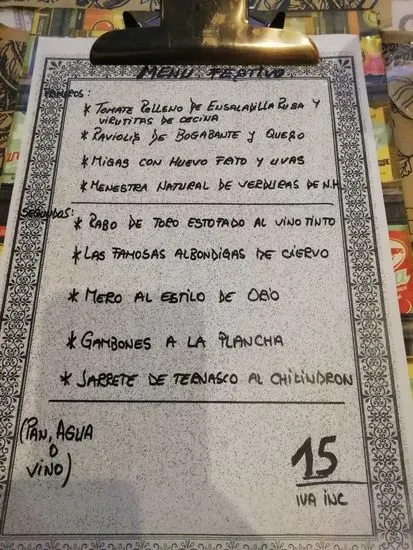 MENU FESTIVO
PRIMEROS:
* TOMATE RELLENO DE ENSALADILLA RUSA Y
VIRUTITAS DE CECINA
* RAVIOLIS DE BOGABANTE Y QUESO
* MIGAS CON HUEVO FRITO Y UVAS
* MENESTRA NATURAL DE VERDURAS DE N.H
SEGUNDOS:
* RABO DE TORO ESTOFADO AL VINO TINTO
* LAS FAMOSAS ALBONDIGAS DE CIERVO
* MERO AL ESTILO DE ORIO
* GAMBONES A LA PLANCHA
* JARRETE DE TERNASCO AL CHILINDRON
(PAN, AGUA
O
VINO)
15
IVA INC